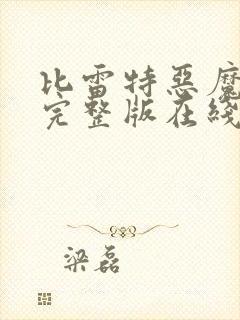 比雷特惡魔
完整版在綫
梁磊